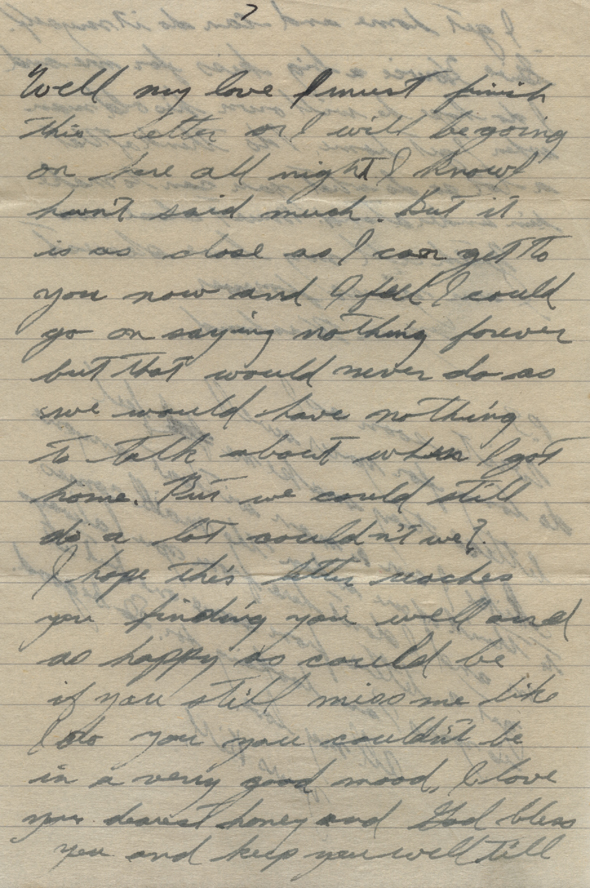 7
Well my love I must finish
this letter or I will be going
on here all night I know I
havn't said much. But it
is as close as I can get to
you now and I feel I could
go on saying nothing forever
but that would never do as
we would have nothing
to talk about when I got
home. But we could still
do a lot couldn't we?
I hope this letter reaches
you finding you well and
as happy as could be
if you still miss me like
I do you you couldn't be
in a very good mood, I love
you dearest honey and God bless
you and keep you well till